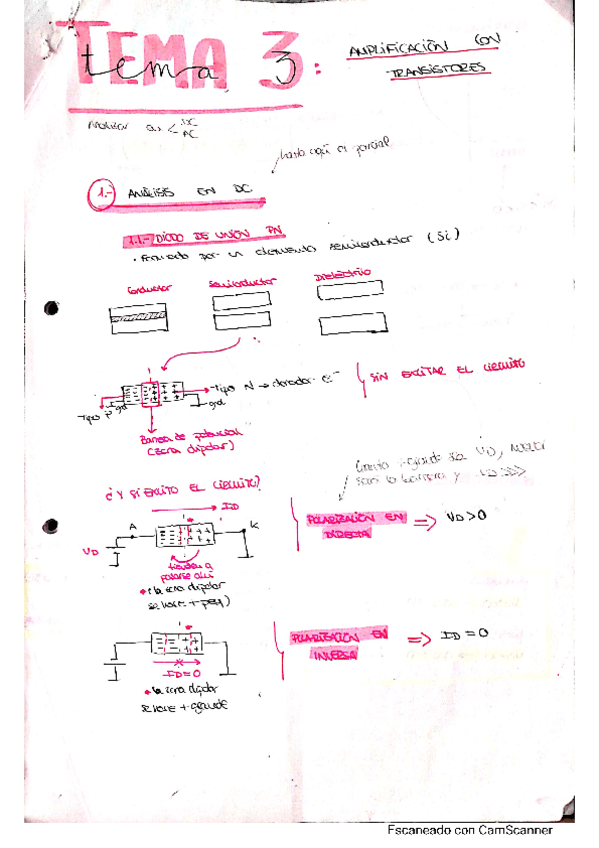 TEMA 3
tema 3 : AMPLIFICACIÓN CON
TRANSISTORES
Analizar DC
AC
hasta aquí el parcial
1.- ANÁLISIS EN DC
1.1.- DIODO DE UNIÓN PN
• Formado por un elemento semiconductor (Si)
Conductor Semiconductor Dieléctrico
Tipo P gnd gnd Tipo N → donador e⁻
SIN EXCITAR EL CIRCUITO
Barrera de potencial
(zona dipolar)
¿Y SI EXCITO EL CIRCUITO?
ID
A K
VD
POLARIZACIÓN EN
DIRECTA
=> VD>0
tienden a
aquí
• (la zona dipolar
se hace + peq)
POLARIZACIÓN EN
INVERSA
=> ID=0
ID=0
• la zona dipolar
se hace + grande
Escaneado con CamScanner